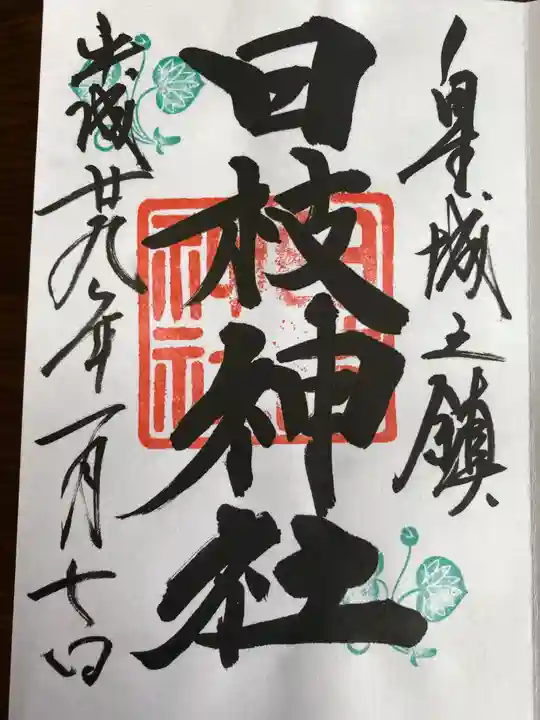 皇城之鎮
日枝神社
平成廿九年一月十四日
日枝神社